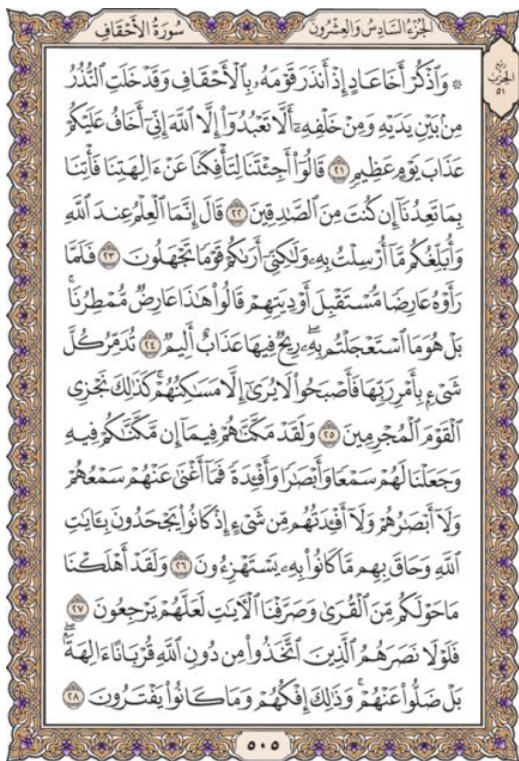 الجزء السادس والعشرون سورة الأحقاف
ربع
الحزب
٥١
۞ وَٱذْكُرْ أَخَا عَادٍ إِذْ أَنذَرَ قَوْمَهُۥ بِٱلْأَحْقَافِ وَقَدْ خَلَتِ ٱلنُّذُرُ
مِنۢ بَيْنِ يَدَيْهِ وَمِنْ خَلْفِهِۦٓ أَلَّا تَعْبُدُوٓا۟ إِلَّا ٱللَّهَ إِنِّىٓ أَخَافُ عَلَيْكُمْ
عَذَابَ يَوْمٍ عَظِيمٍ ٢١ قَالُوٓا۟ أَجِئْتَنَا لِتَأْفِكَنَا عَنْ ءَالِهَتِنَا فَأْتِنَا
بِمَا تَعِدُنَآ إِن كُنتَ مِنَ ٱلصَّـٰدِقِينَ ٢٢ قَالَ إِنَّمَا ٱلْعِلْمُ عِندَ ٱللَّهِ
وَأُبَلِّغُكُم مَّآ أُرْسِلْتُ بِهِۦ وَلَـٰكِنِّىٓ أَرَىٰكُمْ قَوْمًا تَجْهَلُونَ ٢٣ فَلَمَّا
رَأَوْهُ عَارِضًا مُّسْتَقْبِلَ أَوْدِيَتِهِمْ قَالُوا۟ هَـٰذَا عَارِضٌ مُّمْطِرُنَا ۚ
بَلْ هُوَ مَا ٱسْتَعْجَلْتُم بِهِۦ ۖ رِيحٌ فِيهَا عَذَابٌ أَلِيمٌ ٢٤ تُدَمِّرُ كُلَّ
شَىْءٍۭ بِأَمْرِ رَبِّهَا فَأَصْبَحُوا۟ لَا يُرَىٰٓ إِلَّا مَسَـٰكِنُهُمْ ۚ كَذَٰلِكَ نَجْزِى
ٱلْقَوْمَ ٱلْمُجْرِمِينَ ٢٥ وَلَقَدْ مَكَّنَّـٰهُمْ فِيمَآ إِن مَّكَّنَّـٰكُمْ فِيهِ
وَجَعَلْنَا لَهُمْ سَمْعًا وَأَبْصَـٰرًا وَأَفْـِٔدَةً فَمَآ أَغْنَىٰ عَنْهُمْ سَمْعُهُمْ
وَلَآ أَبْصَـٰرُهُمْ وَلَآ أَفْـِٔدَتُهُم مِّن شَىْءٍ إِذْ كَانُوا۟ يَجْحَدُونَ بِـَٔايَـٰتِ
ٱللَّهِ وَحَاقَ بِهِم مَّا كَانُوا۟ بِهِۦ يَسْتَهْزِءُونَ ٢٦ وَلَقَدْ أَهْلَكْنَا
مَا حَوْلَكُم مِّنَ ٱلْقُرَىٰ وَصَرَّفْنَا ٱلْـَٔايَـٰتِ لَعَلَّهُمْ يَرْجِعُونَ ٢٧
فَلَوْلَا نَصَرَهُمُ ٱلَّذِينَ ٱتَّخَذُوا۟ مِن دُونِ ٱللَّهِ قُرْبَانًا ءَالِهَةًۢ ۖ
بَلْ ضَلُّوا۟ عَنْهُمْ ۚ وَذَٰلِكَ إِفْكُهُمْ وَمَا كَانُوا۟ يَفْتَرُونَ ٢٨
٥٠٥